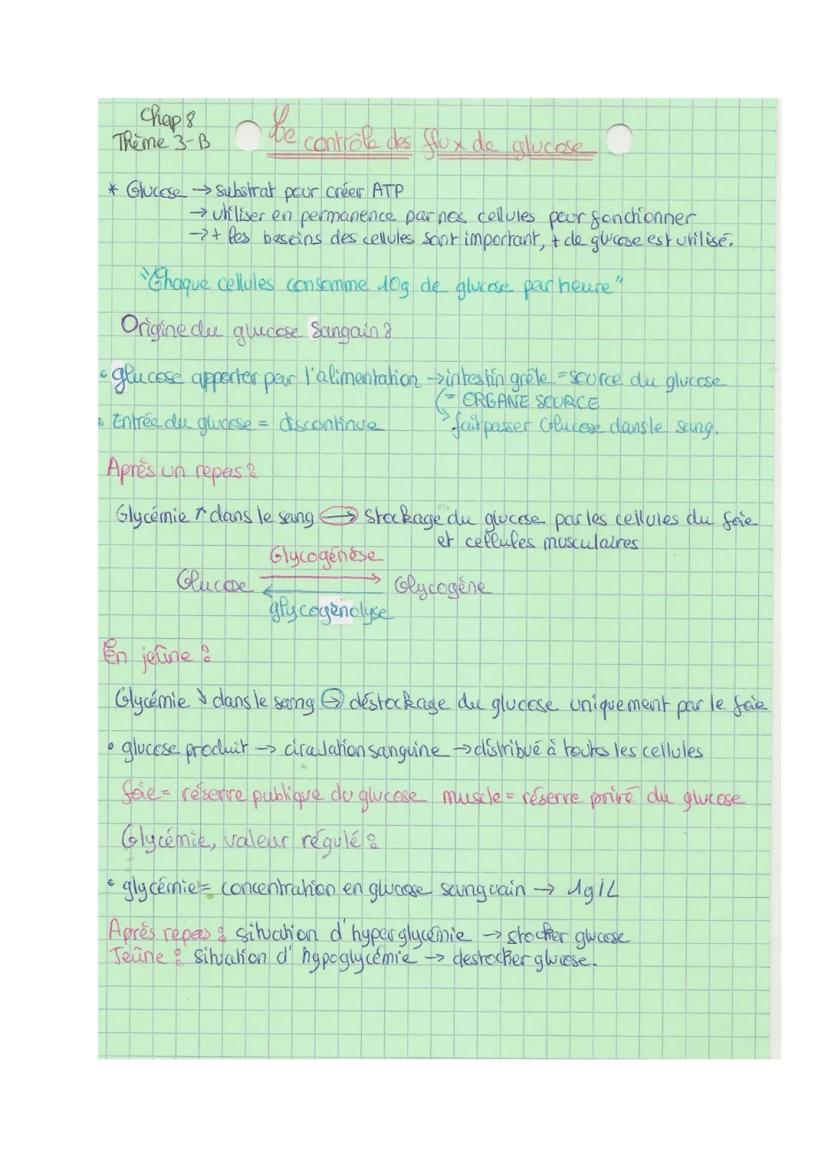 Chap 8
Thème 3-B
Le contrôle des flux de glucose
* Glucose → substrat pour créer ATP
→ utiliser en permanence par nos cellules pour fonctionner
→ + les besoins des cellules sont important, + de glucose est utilisé.
"Chaque cellules consomme 10g de glucose par heure"
Origine du glucose Sanguin ?
• glucose apporter par l'alimentation → intestin grêle = source du glucose
(= ORGANE SOURCE
• Entrée du glucose = discontinue
↳ fait passer Glucose dans le sang.
Après un repas :
Glycémie ↗ dans le sang ⇒ Stockage du glucose par les cellules du foie
et cellules musculaires
Glycogénèse
Glucose ⇄ Glycogène
glycogénolyse
En jeûne :
Glycémie ↘ dans le sang → déstockage du glucose uniquement par le foie
• glucose produit → circulation sanguine → distribué à toutes les cellules
foie = réserve publique du glucose muscle = réserve privé du glucose
Glycémie, valeur régulé :
• glycémie = concentration en glucose sanguain → 1g/L
Après repas : situation d'hyperglycémie → stocker glucose
Jeûne : situation d'hypoglycémie → destocker glucose.